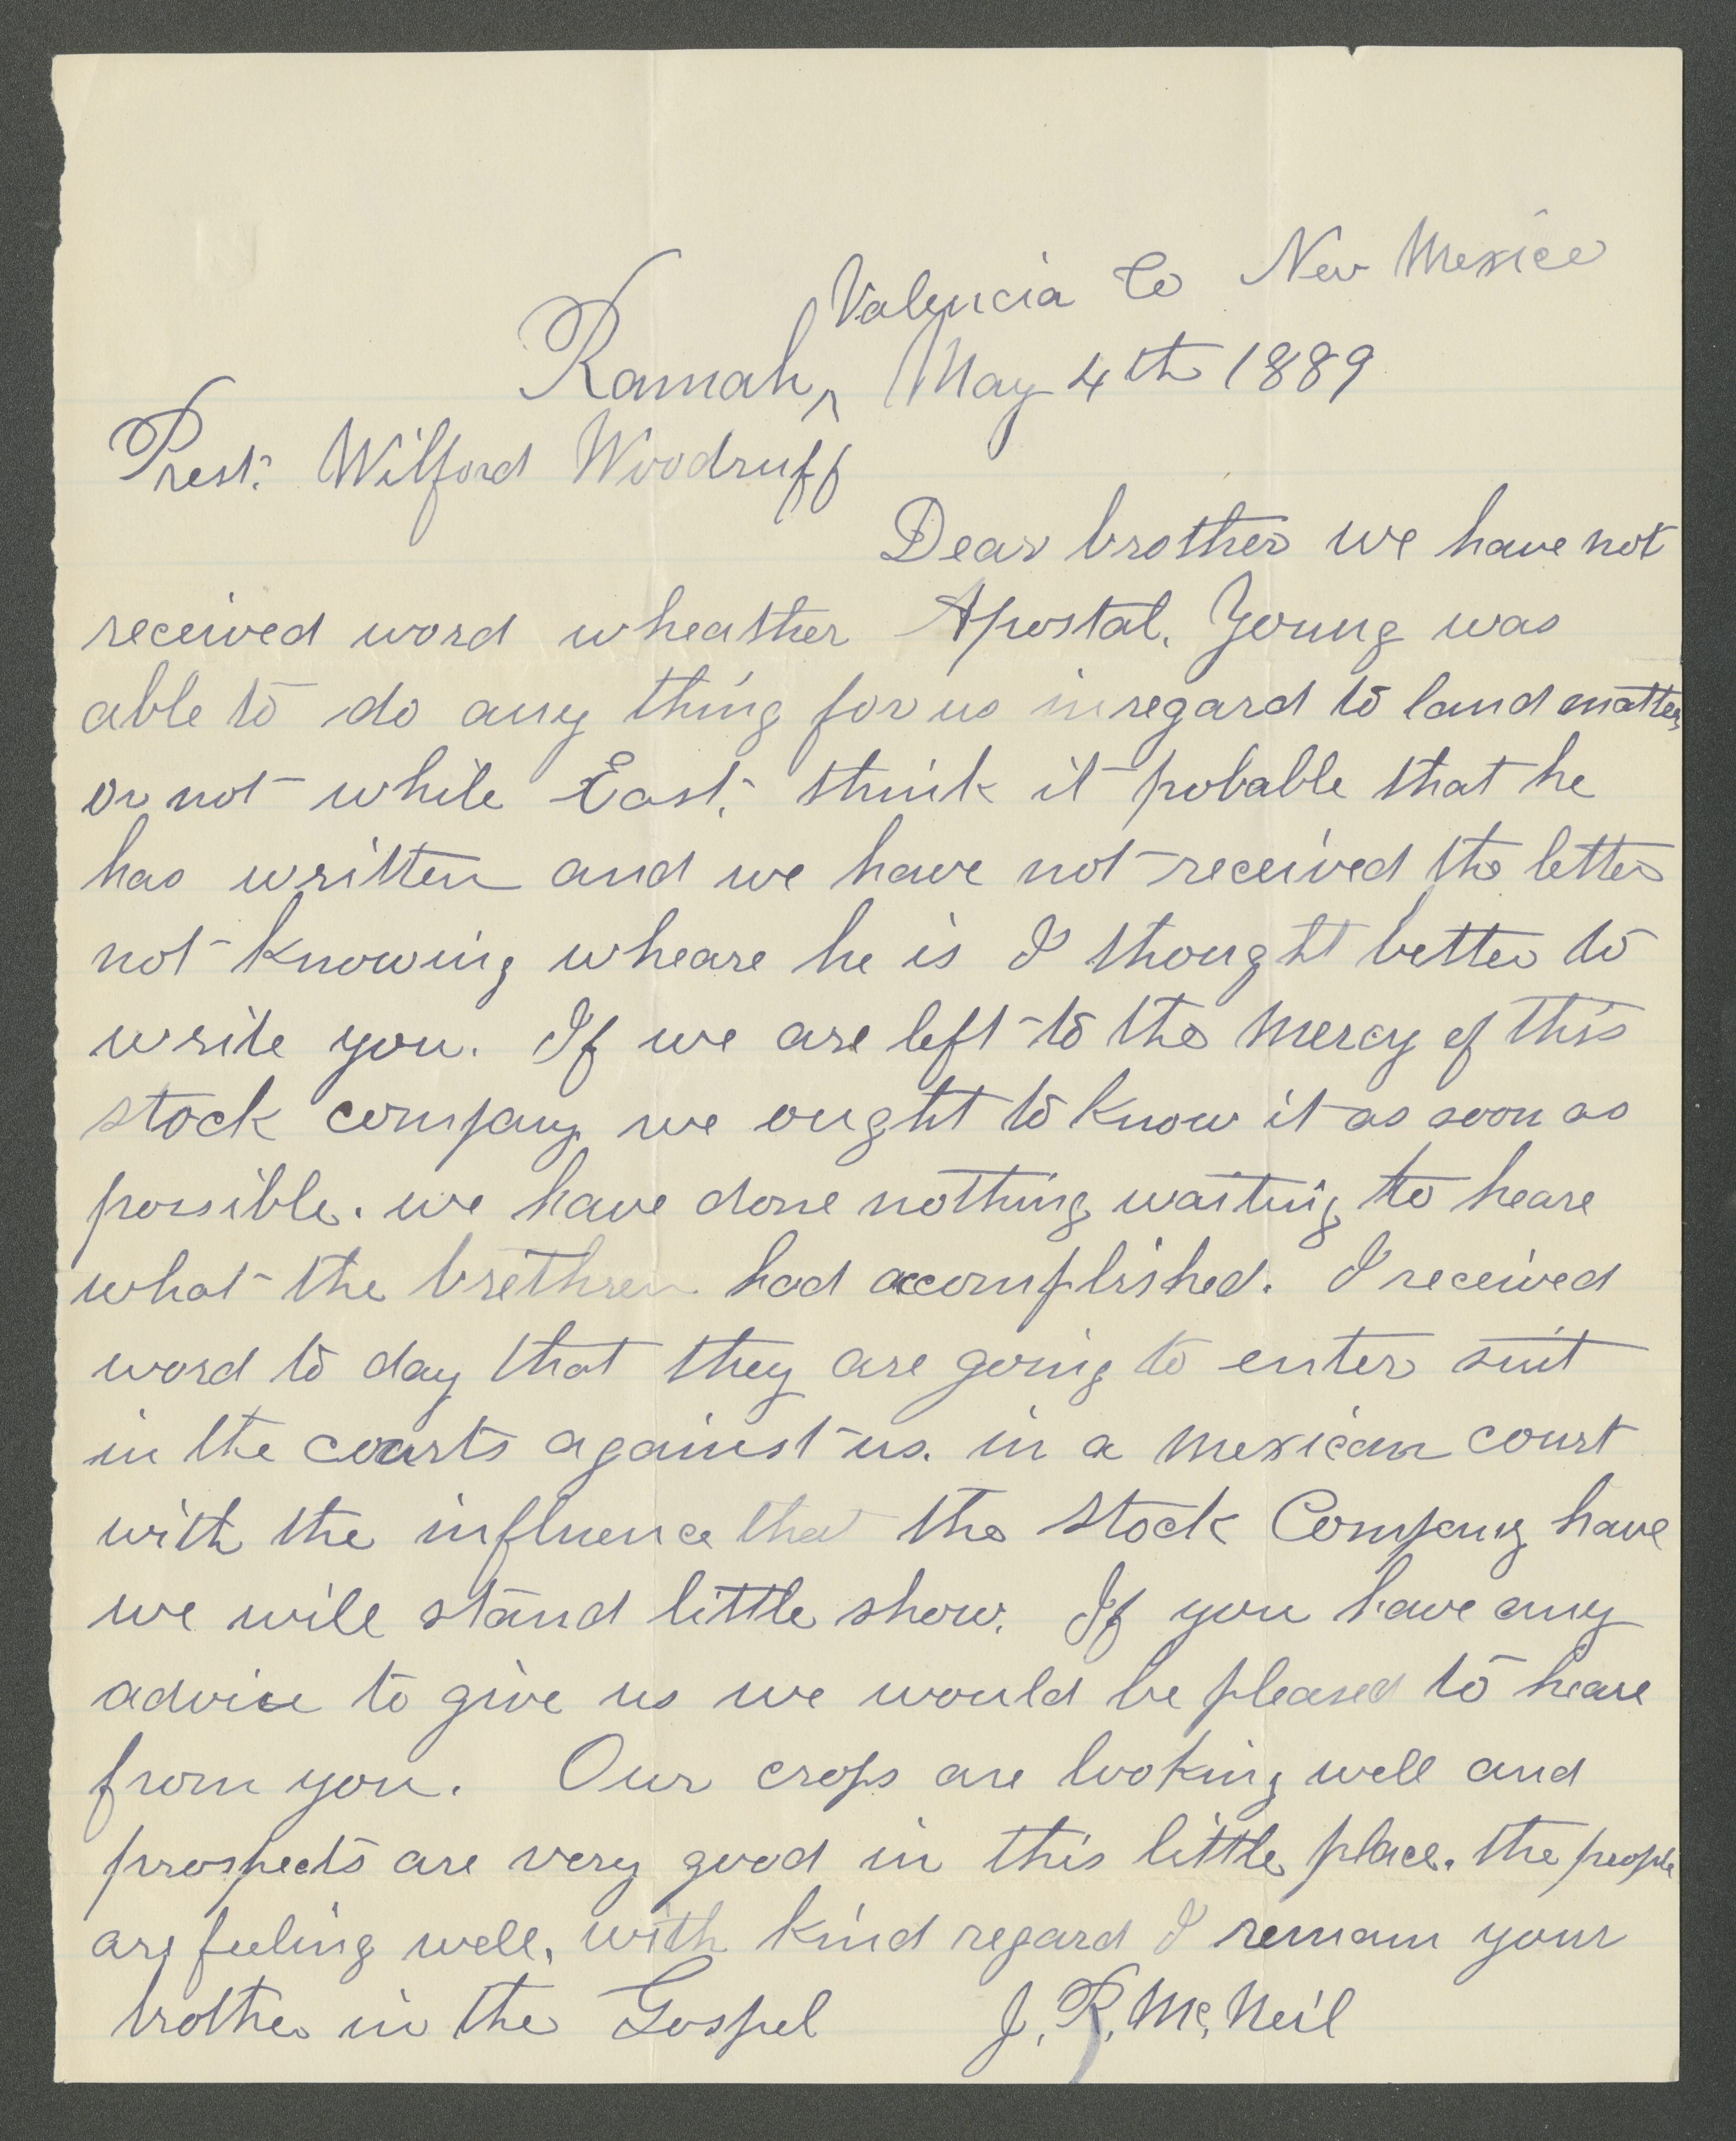 Valencia Co New Mexico
Ramah, ^ May 4th 1889
Prest. Wilford Woodruff
Dear brother we have not
received word wheather Apostal. Young was
able to do any thing for us in regard to land matters
or not while East. think it pobable that he
has written and we have not received the letter
not knowing wheare he is I thought better to
write you. If we are left to the mercy of this
stock company we ought to know it as soon as
possible. we have done nothing waiting to heare
what the brethren had accomplished. I received
word to day that they are going to enter suit
in the courts against us. in a mexican court
with the influence that the Stock Company have
we will stand little show. If you have any
advise to give us we would be pleased to heare
from you. Our crops are looking well and
prospects are very good in this little place. the people
are feeling well, with kind regard I remain your
brother in the Gospel J. R. Mc. Neil